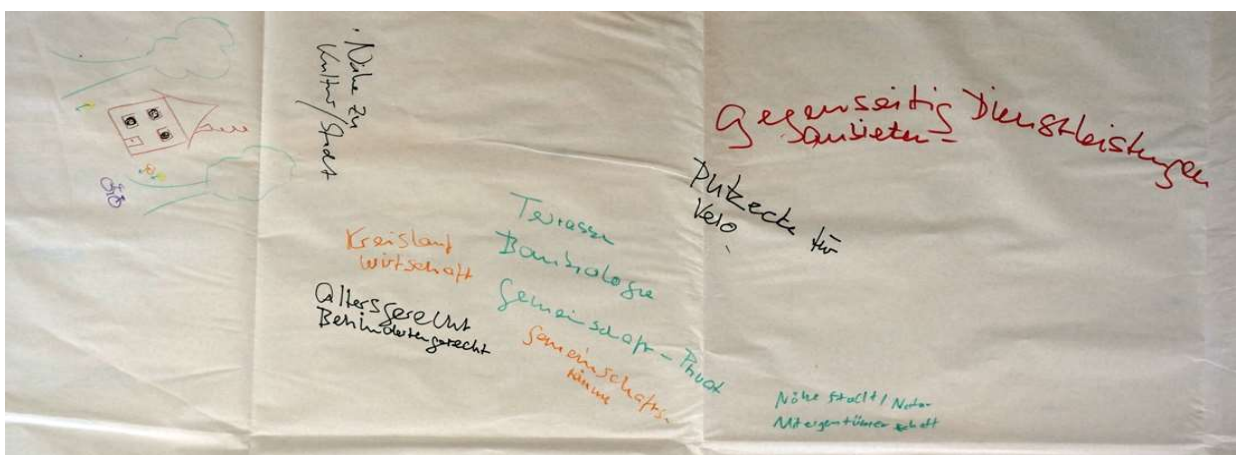 · Nähe zu
Kultur/Stadt
Gegenseitig Dienstleistungen
anbieten -
Putzecke für
Velo
Terrasse
Baubiologie
Gemeinschaft - Privat
Kreislauf
wirtschaft
Altersgerecht
Behindertengerecht
Gemeinschafts-
räume
Nähe Stadt / Natur
Miteigentümerschaft